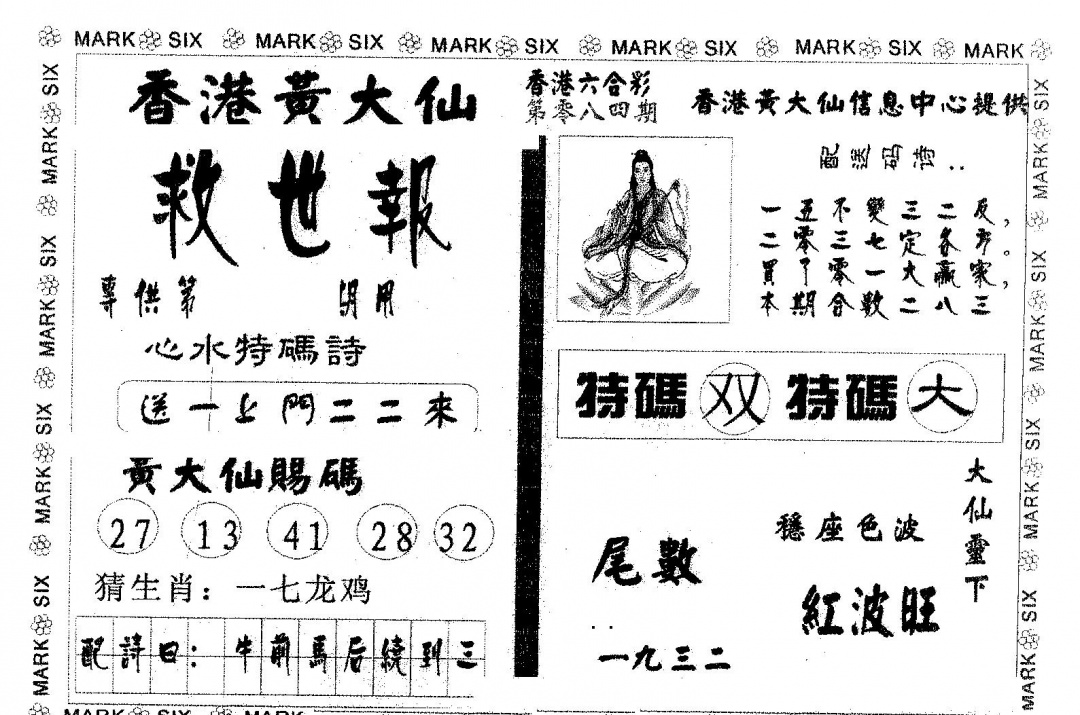 MARK SIX MARK SIX MARK SIX MARK SIX MARK SIX MARK
香港黃大仙
救世報
專供第 期用
心水特碼詩
送一上門二二來
黃大仙賜碼
27 13 41 28 32
猜生肖：一七龙鸡
配詩曰：牛前馬后繞到三
香港六合彩
第零八四期
香港黃大仙信息中心提供
配送码诗：
一五不變三二反，
二零三七定各。
買了零一大贏家，
本期合數二八三
特碼 双 特碼 大
尾數：
一九三二
穩座色波
紅波旺
大仙靈下
MARK SIX MARK SIX MARK SIX MARK SIX
MARK SIX MARK SIX MARK SIX MARK SIX
MARK SIX MARK